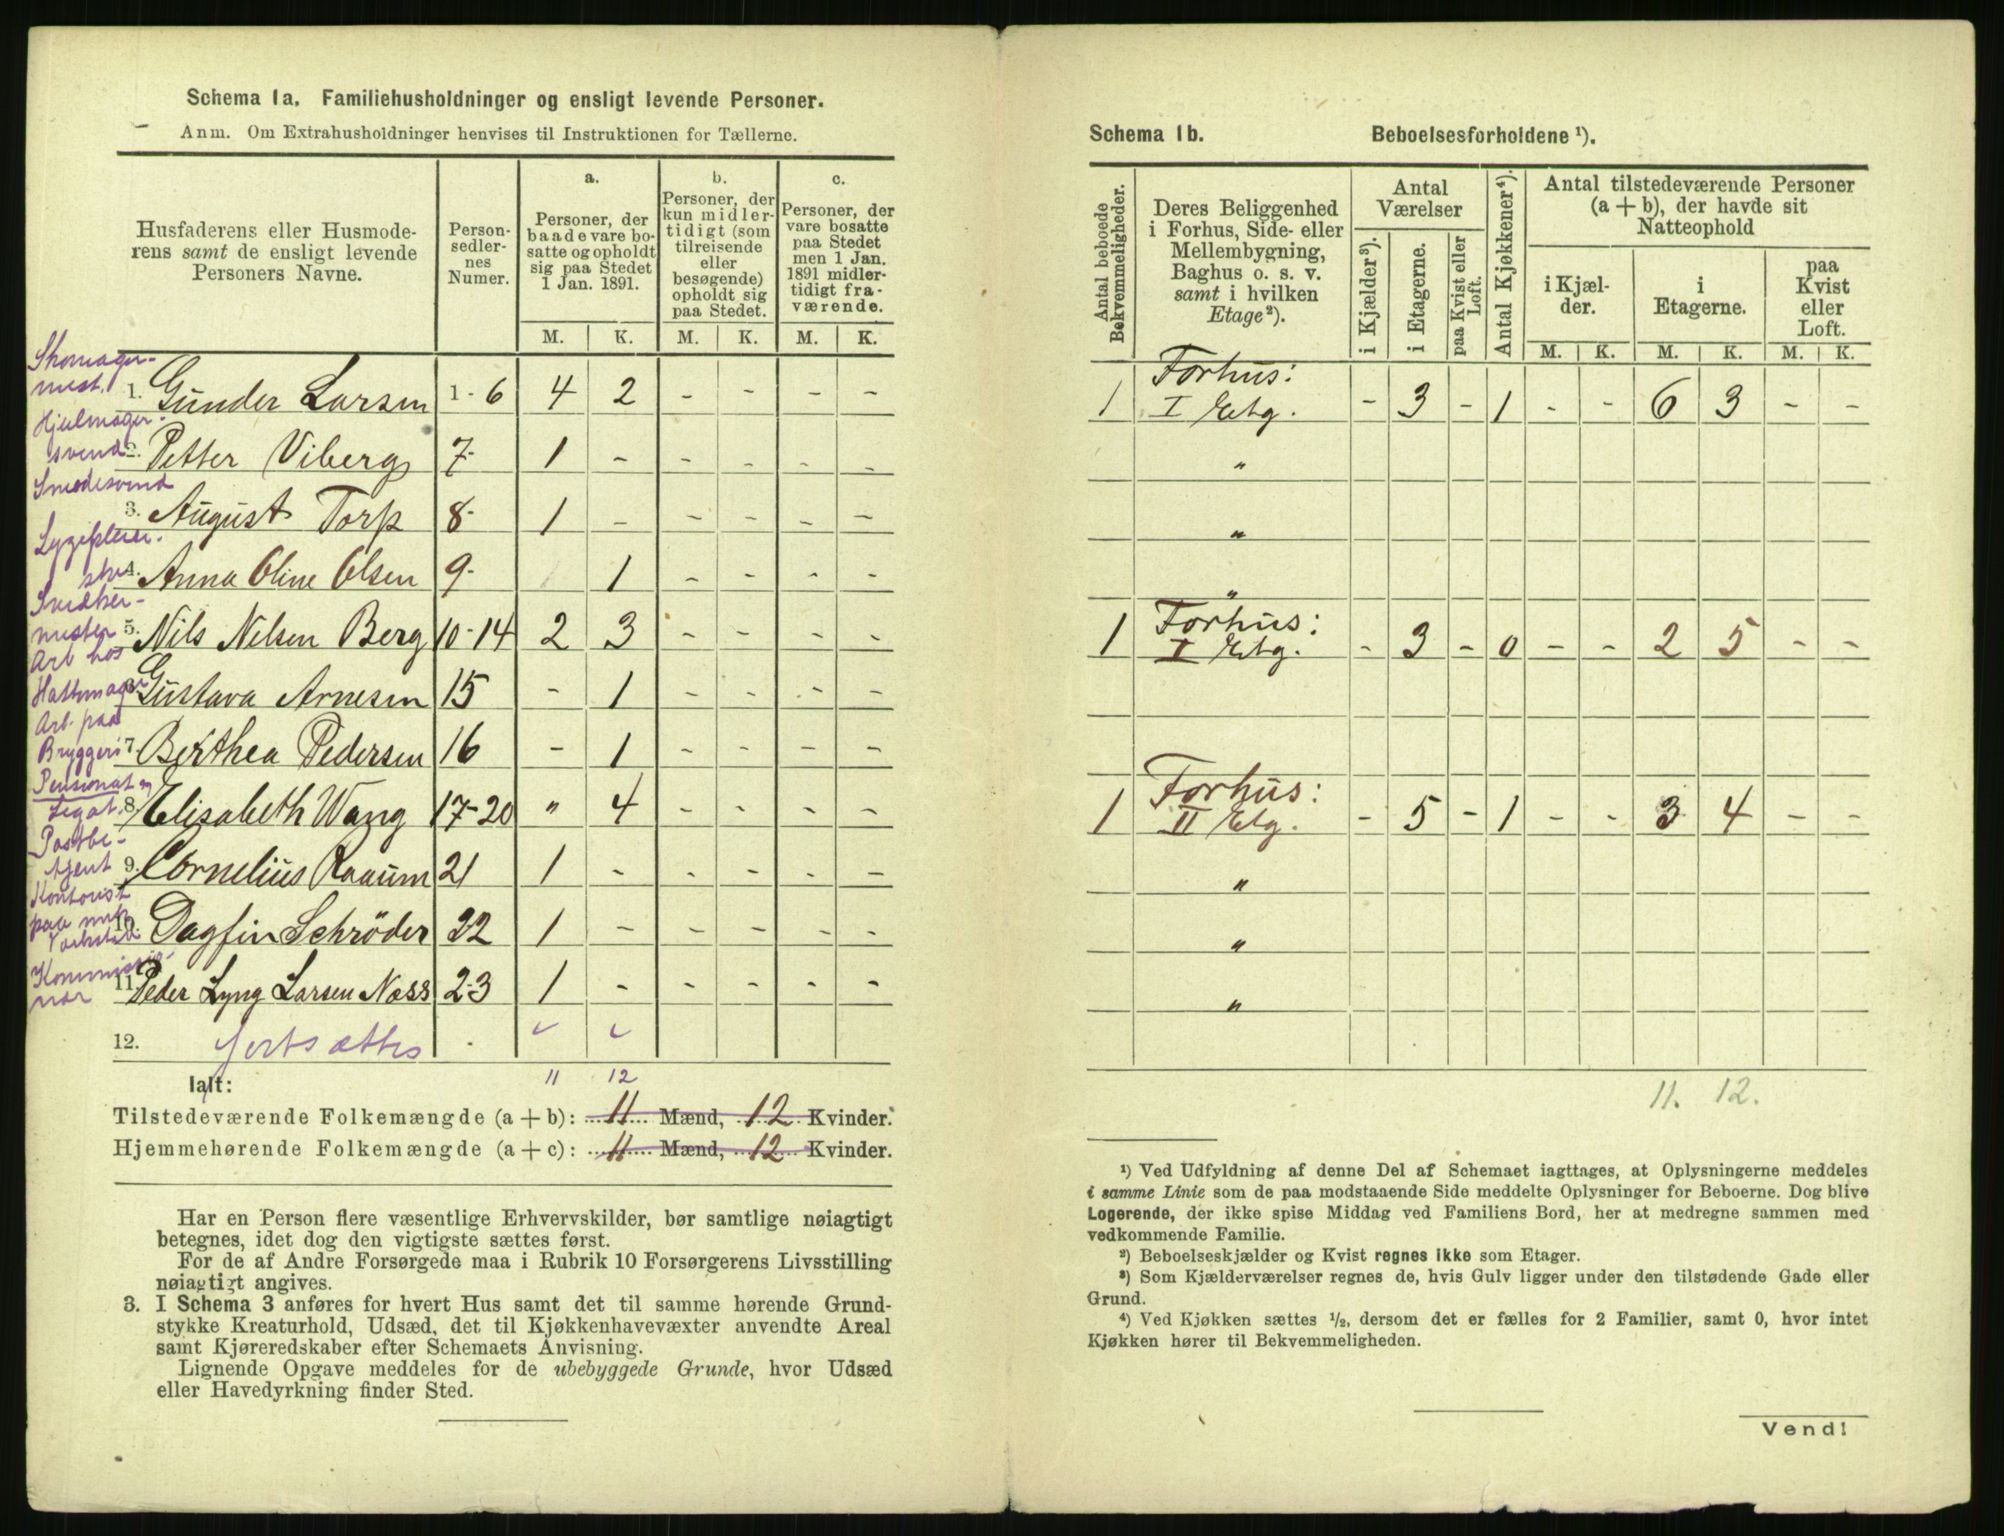 Schema 1a. Familiehusholdninger og ensligt levende Personer.
Anm. Om Extrahusholdninger henvises til Instruktionen for Tællerne.
Husfaderens eller Husmode-
rens samt de ensligt levende
Personers Navne.
Person-
sedler-
nes
Numer.
a.
Personer, der
baade vare bo-
satte og opholdt
sig paa Stedet
1 Jan. 1891.
b.
Personer, der
kun midler-
tidigt (som
tilreisende
eller
besøgende)
opholdt sig
paa Stedet.
c.
Personer, der
vare bosatte
paa Stedet
men 1 Jan.
1891 midler-
tidigt fra-
værende.
M. K. M. K. M. K.
Skomager-
mest.
1. Gunder Larsen 1-6 4 2 - - - -
Hjulmager-
svend
2. Petter Viberg 7- 1 - - - - -
Smedesvend
3. August Torp 8- 1 - - - - -
4. Anna Oline Olsen 9- 1 - - - -
Snedker-
mester
5. Nils Nelsen Berg 10-14 2 3 - - - -
Arb hos
Hattemager
6. Gustava Arnesen 15 - 1 - - - -
Art. paa
Bryggeri
7. Berthea Pedersen 16 - 1 - - - -
Pensionat og
Legat.
8. Elisabeth Wang 17-20 " 4 - - - -
Postbe-
tjent
9. Cornelius Raaum 21 1 - - - - -
Kontorist
paa mek
Værksted
10. Dagfin Schröder 22 1 - - - - -
Kommissio-
nær
11. Peder Lyng Larsen Næss 23 1 - - - - -
12. fortsættes
Ialt: 11 12
Tilstedeværende Folkemængde (a + b): 11 Mænd, 12 Kvinder.
Hjemmehørende Folkemængde (a + c): 11 Mænd, 12 Kvinder.
Har en Person flere væsentlige Erhvervskilder, bør samtlige nøiagtigt
betegnes, idet dog den vigtigste sættes først.
For de af Andre Forsørgede maa i Rubrik 10 Forsørgerens Livsstilling
nøiagtigt angives.
3. I Schema 3 anføres for hvert Hus samt det til samme hørende Grund-
stykke Kreaturhold, Udsæd, det til Kjøkkenhavevæxter anvendte Areal
samt Kjøreredskaber efter Schemaets Anvisning.
Lignende Opgave meddeles for de ubebyggede Grunde, hvor Udsæd
eller Havedyrkning finder Sted.
Schema 1b. Beboelsesforholdene ¹).
Antal beboede
Bekvemmeligheder.
Deres Beliggenhed
i Forhus, Side- eller
Mellembygning,
Baghus o. s. v.
samt i hvilken
Etage²).
Antal
Værelser
i Kjælder³).
i Etagerne.
paa Kvist eller
Loft.
Antal Kjøkkener⁴).
Antal tilstedeværende Personer
(a + b), der havde sit
Natteophold
i Kjæl-
der.
i
Etagerne.
paa
Kvist
eller
Loft.
M. K. M. K. M. K.
Forhus:
1 I Etg. - 3 - 1 - - 6 3 - -
"
"
"
Forhus:
1 I Etg. - 3 - 0 - - 2 5 - -
Forhus:
1 II Etg. - 5 - 1 - - 3 4 - -
"
"
"
11. 12.
¹) Ved Udfyldning af denne Del af Schemaet iagttages, at Oplysningerne meddeles
i samme Linie som de paa modstaaende Side meddelte Oplysninger for Beboerne. Dog blive
Logerende, der ikke spise Middag ved Familiens Bord, her at medregne sammen med
vedkommende Familie.
²) Beboelseskjælder og Kvist regnes ikke som Etager.
³) Som Kjælderværelser regnes de, hvis Gulv ligger under den tilstødende Gade eller
Grund.
⁴) Ved Kjøkken sættes ½, dersom det er fælles for 2 Familier, samt 0, hvor intet
Kjøkken hører til Bekvemmeligheden.
Vend!